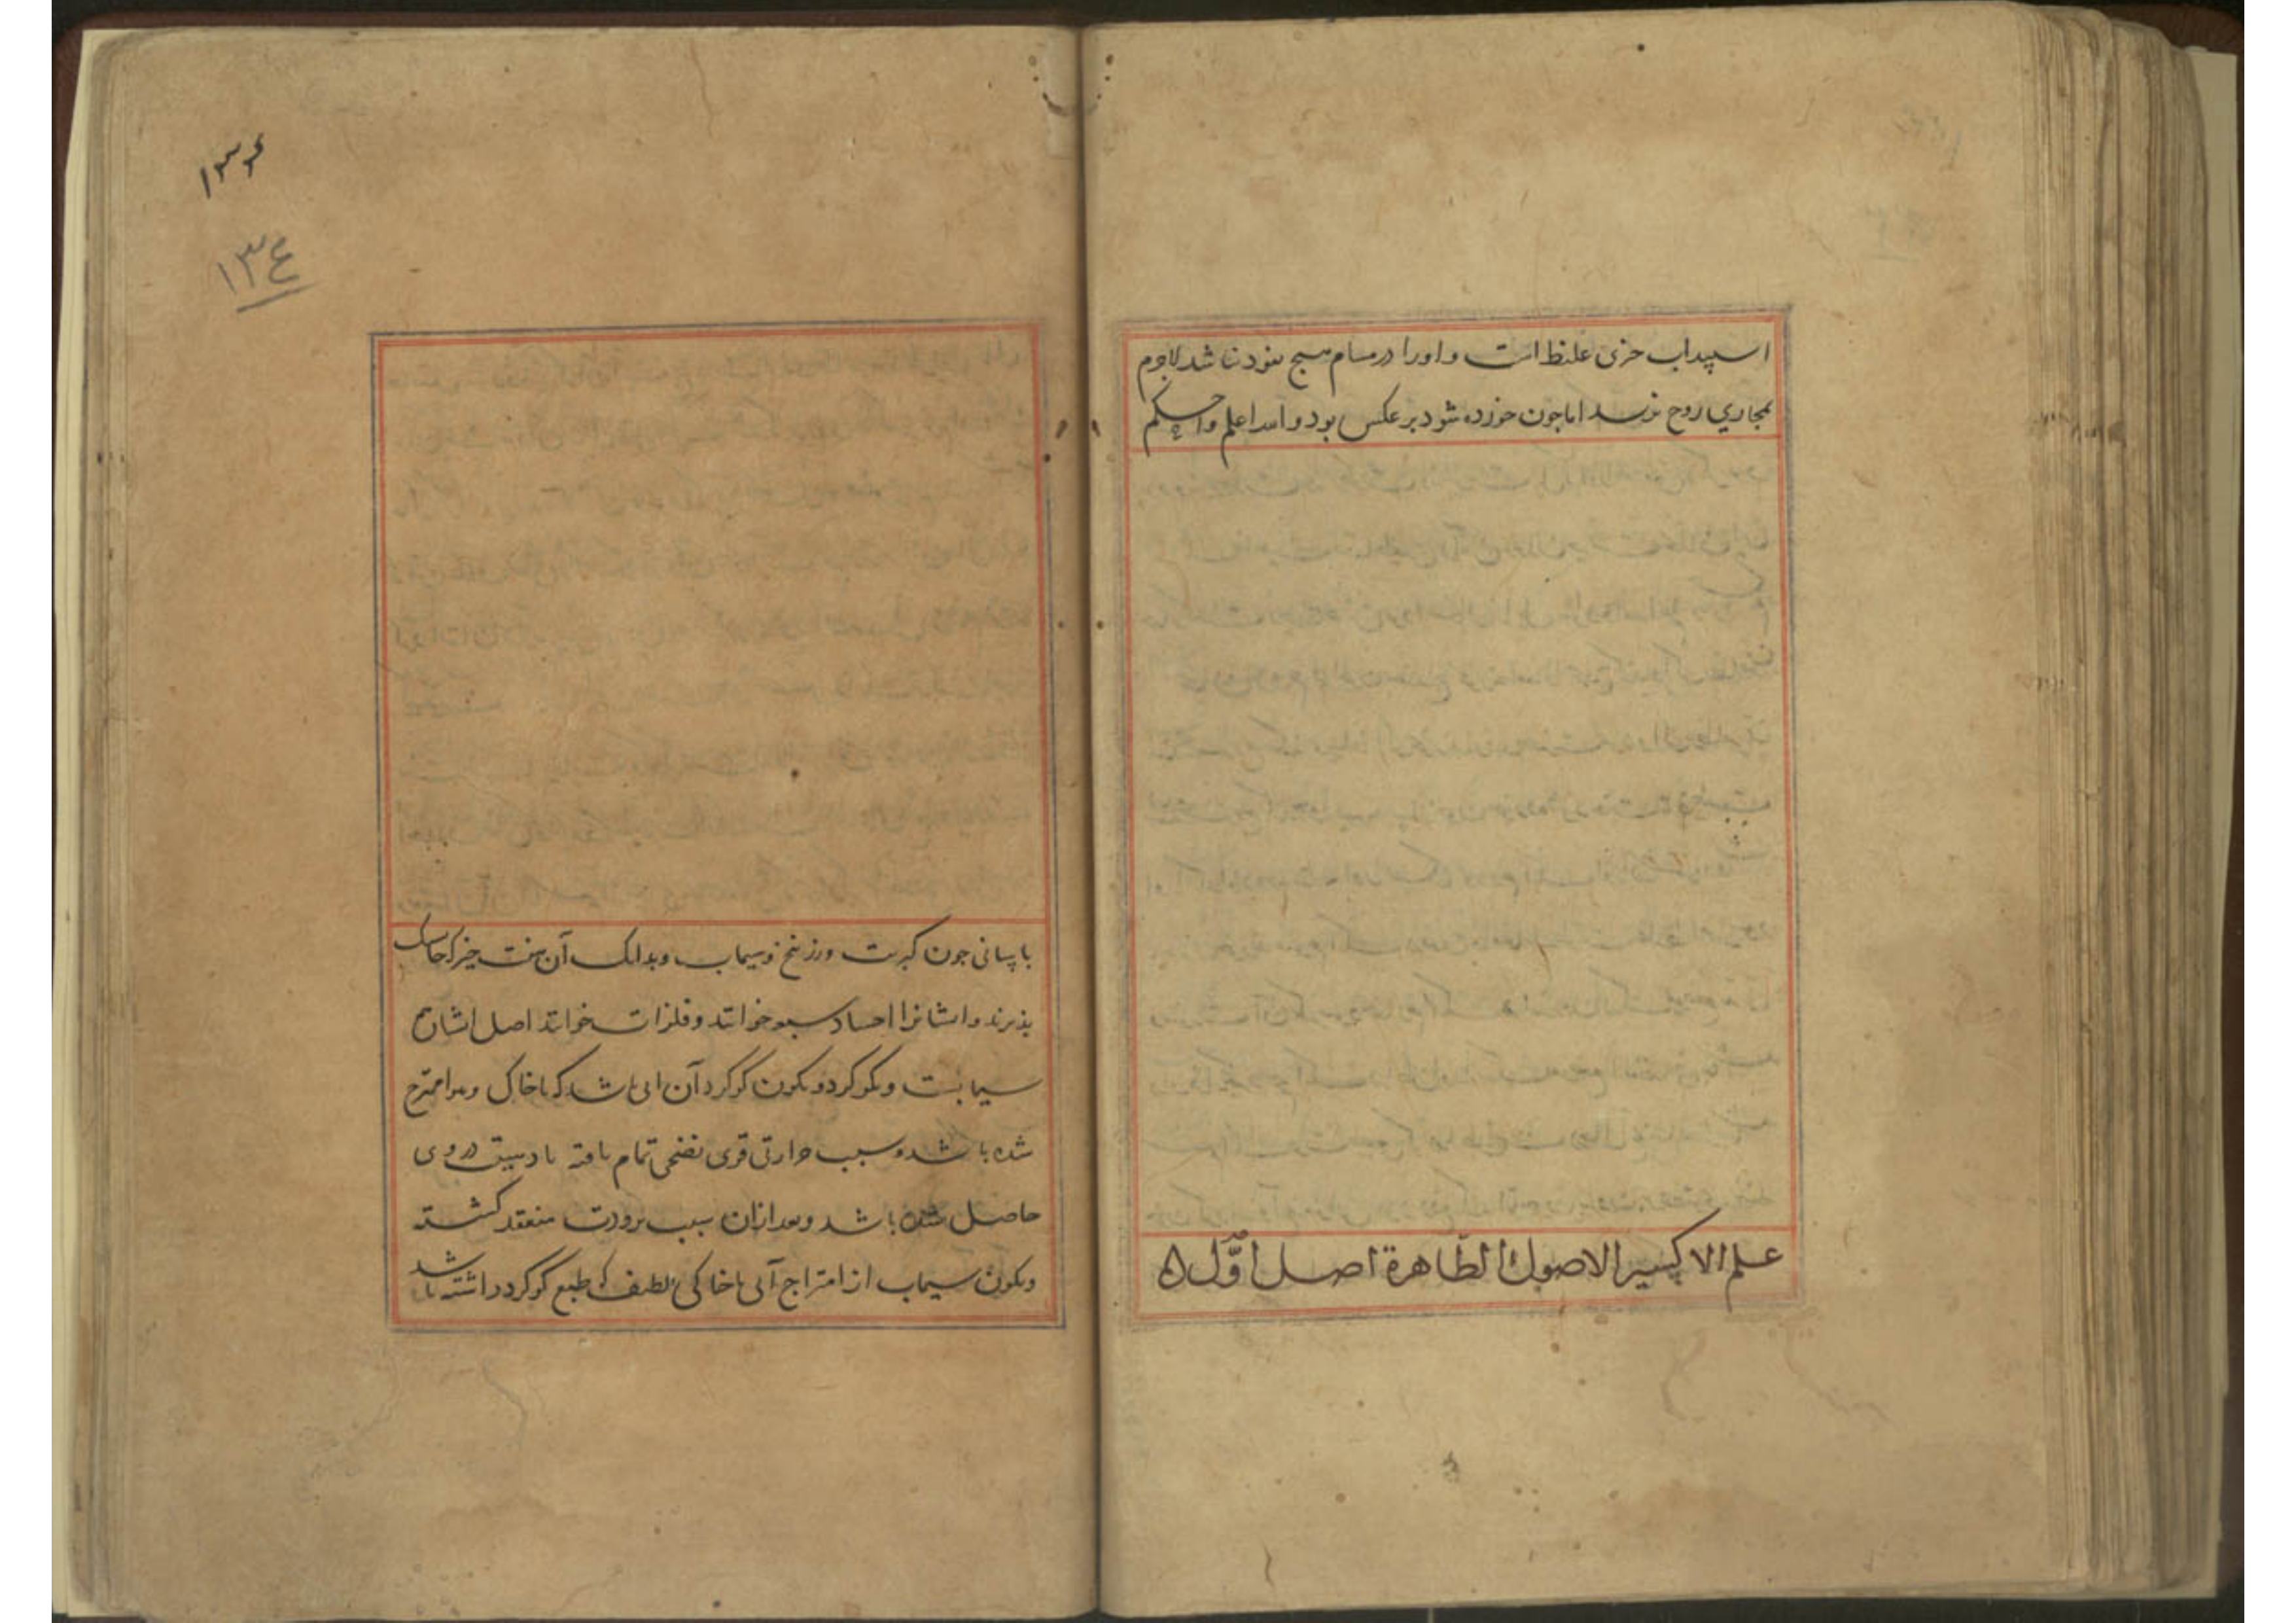 اسپیداب جزی غلیظ است و او را در مسام هیچ نفوذ نباشد لاجرم
بمجاری روح نرسد اما جون خورده شود برعکس بود والله اعلم واحکم
علم الاکسیر الاصول الظاهرة اصل اوّل
۱۳۴
۱۳٤
یا پسانی جون کبریت و زرنیخ و سیماب و بدانک آن هفت جیز که خایسک
بذیرند و ایشانرا اجساد سبعه خوانند و فلزات خوانند اصل ایشان هم
سیمابست و کوکرد و تکون کوکرد آن ابی باشد که با خاک و هوا ممتزج
شده باشد و بسبب حرارتی قوی نضجی تمام یافته تا دهنیت در وی
حاصل شده باشد و بعد از آن بسبب برودت منعقد کشته
و تکون سیماب از امتزاج آبی با خاکی لطیف که طبع کوکرد داشته باشد